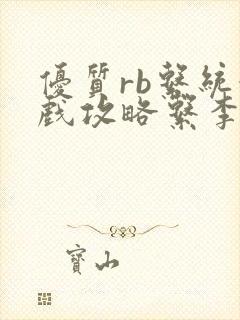 優質rb繫統
戲攻略繫李
寶山